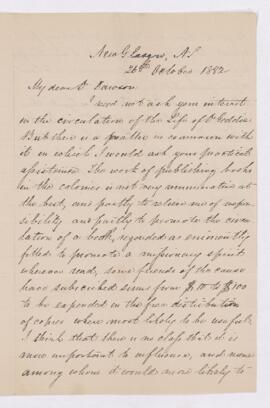 New Glasgow, N.S
26th October 1882
My dear Dr Dawson
I need not ask you interest
in the circulation of the Life of Dr Geddie
But there is a matter in connexion with
it in which I would ask your practical
assistance. The work of publishing books
in the colonies is not very remunerative at
the best, and partly to relieve me of respon
sibility and partly to promote the circu
lation of a book, regarded as eminently
fitted to promote a missionary spirit
where read, some friends of the cause
have subscribed sums from $10 to $100
to be expended in the free distribution
of copies where most likely to be useful.
I think that there is no class that it is
more important to influence, and none
among whom it would more likely to